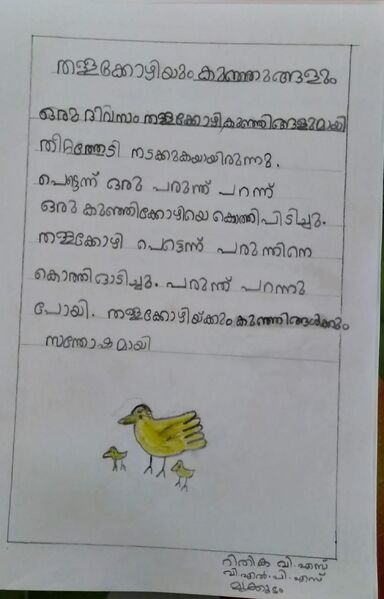 തള്ളക്കോഴിയും കുഞ്ഞുങ്ങളും
ഒരു ദിവസം തള്ളക്കോഴി കുഞ്ഞിങ്ങളുമായി
തീറ്റത്തേടി നടക്കുകയായിരുന്നു.
പെട്ടെന്ന് ഒരു പരുന്ത് പറന്ന്
ഒരു കുഞ്ഞിക്കോഴിയെ കൊത്തിപിടിച്ചു.
തള്ളക്കോഴി പെട്ടെന്ന് പരുന്തിനെ
കൊത്തിഓടിച്ചു. പരുന്ത് പറന്നു
പോയി. തള്ളക്കോഴിയ്ക്കും കുഞ്ഞിങ്ങൾക്കും
സന്തോഷമായി
റിതിക വി.എസ്
വി.എൽ.പി.എസ്